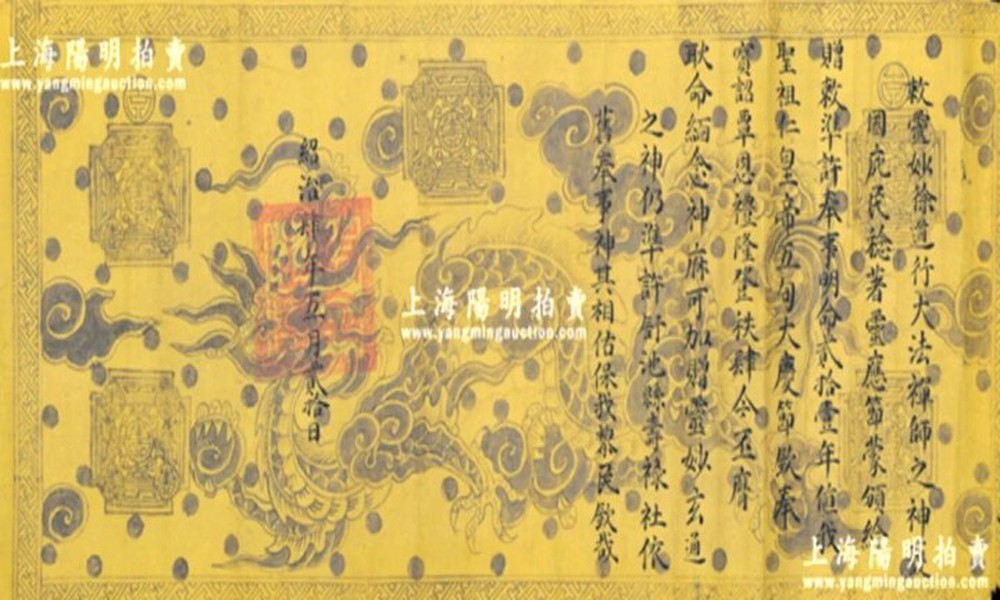 敕靈妙徐道行大法禪師之神
國庇民稔著靈應節蒙頒給
贈敕準許奉事明命貳拾壹年值我
聖祖仁皇帝五旬大慶節欽奉
寶詔覃恩禮隆登秩肆今丕膺
耿命緬念神庥可加贈靈妙玄通
之神仍準許許池縣壽祿社依
舊奉事神其相佑保我黎民欽哉
紹治肆年五月貳拾日
上海陽明拍賣
www.yangmingauction.com
上海陽明拍賣
www.yangmingauction.com
上海陽明拍賣
www.yangmingauction.com